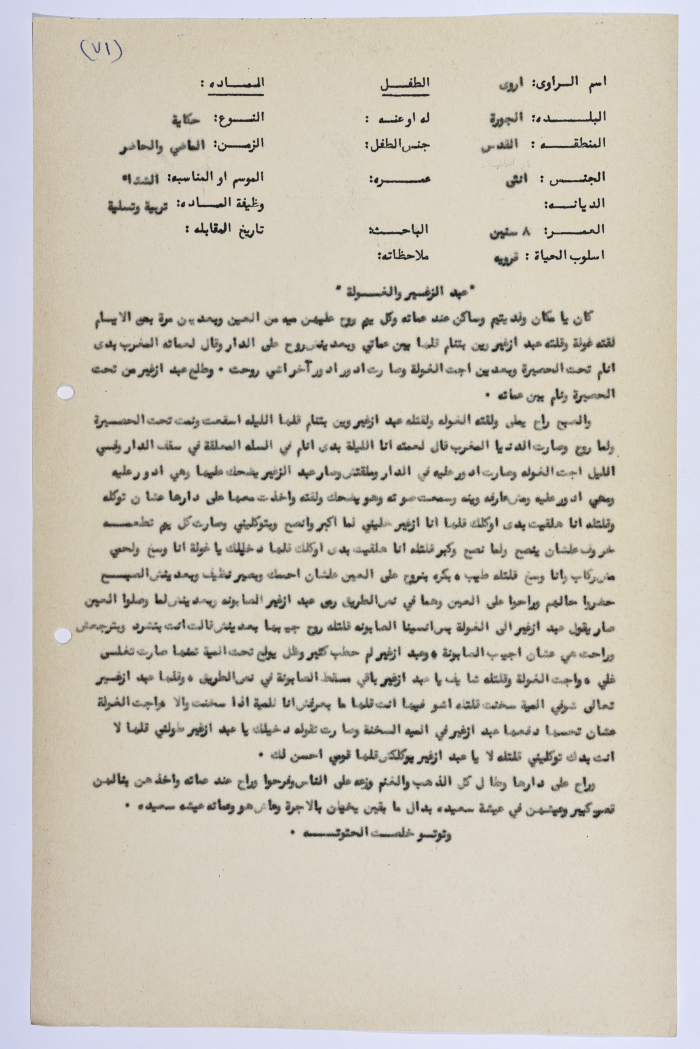 (٧١)
اسم الراوى: اروى الطفل المادة :
البلده: الجورة له او عنه : النوع: حكاية
المنطقه : القدس جنس الطفل: الزمن: الماضي والحاضر
الجنس : انثى عمره: الموسم او المناسبه: الشتاء
الديانه: وظيفة المادة: تربية وتسلية
العمر: ٨ سنين الباحث: تاريخ المقابله :
اسلوب الحياة : قرويه ملاحظاته:
" عبد الزغير والغولة "
كان يا مكان ولد يتيم وساكن عند عماته وكل يوم روح عليهن ميه من العين وبعدين مرة بحد الايام
لقته غولة وقلته عبد ازغير وين بتنام قلها بين عماتي وبعدينش روح على الدار وقال لعماته المغرب بدى
انام تحت الحصيرة وبعدين اجت الغولة وصارت ادور ادور آخر اشي روحت . وطلع عبد ازغير من تحت
الحصيرة ونام بين عماته .
والصبح راح يملي ولقته الغوله ولقتله عبد ازغير وين بتنام قلها الليله اسقعت ونمت تحت الحصيرة
ولما روح وصارت الدنيا المغرب قال لعمته انا الليلة بدى انام في السله المعلقة في سقف الدار وفسي
الليل اجت الغوله وصارت ادور عليه في الدار وملقتش وصار عبد الزغير يضحك عليها وهي ادور عليه
وهي ادور عليه ومش عارفه وينه وسمعت صوته وهو يضحك ولقته واخذت معها على دارها عشان توكله
وقلتله انا هلقيت بدى اوكلك قلها انا ازغير خليني لما اكبر وانصح وبتوكليني وصارت كل يوم تطعمه
خروف علشان ينصح ولما نصح وكبر قلتله انا هلقيت بدى اوكلك قلها دخيلك يا غولة انا وسخ ولحمي
مش ركاب وانا وسخ قلتله طيب ه بكره بنروح على العين علشان احمك وبصير نظيف وبعدينش الصبح
حضروا حالهم وراحوا على العين وهما في نص الطريق رمى عبد ازغير الصابونه وبعدينش لما وصلوا العين
صار يقول عبد ازغير الى الغولة بس انسينا الصابونه قلتله روح جيبها بعدينش قالت انت بتشرد وبترجعش
وراحت هي عشان اجيب الصابونة ه وعبد ازغير لم حطب كثير وظل يولع تحت المية تمنها صارت تغلسي
غلي ه واجت الغولة وقلتله شايف يا عبد ازغير باقي مسقط الصابونة في نص الطريق ه وقلها عبد ازغير
تعالى شوفي المية سخنت قلتله اشو فيها انت قلها ما بعرفش انا للمية اذا سخنت والا ه واجت الغولة
عشان تحسها دفعها عبد ازغير في الميه السخنة وصارت تقوله دخيلك يا عبد ازغير طولني قلها لا
انت بدك توكليني قلتله لا يا عبد ازغير بوكلكش قلها قومي احسن لك .
وراح على دارها وطال كل الذهب والغنم وزعه على الناس وفرحوا وراح عند عماته واخذهن بثالهن
قصر كبير وعيشهن في عيشة سعيده بدال ما بقين يخيان بالاجرة وعاش هو وعماته عيشه سعيده .
وتوتو خلصت الحتوته .